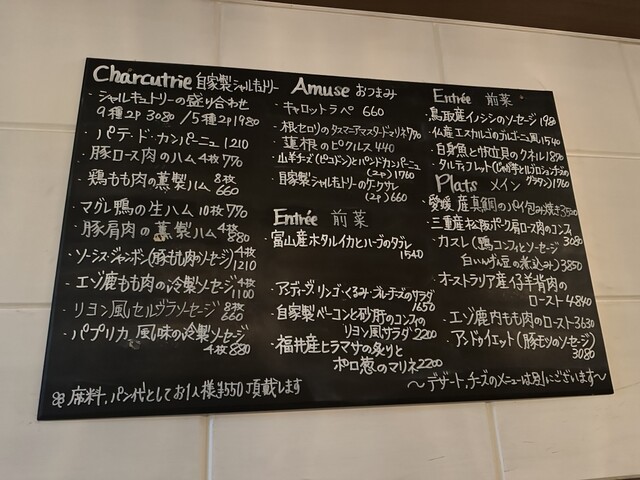 Charcutrie 自家製シャルキュトリー
・シャルキュトリーの盛り合わせ
9種2P 3080 /5種2P1980
・パテ・ド・カンパーニュ 1210
・豚ロース肉のハム 4枚770
・鶏もも肉の薫製ハム 8枚660
・マグレ鴨の生ハム 10枚770
・豚肩肉の薫製ハム 4枚880
・ソーシス・ジャンボン(豚もも肉のソーセージ)4枚1210
・エゾ鹿もも肉の冷製ソーセージ4枚1100
・リヨン風セルヴラソーセージ8枚660
・パプリカ風味の冷製ソーセージ
4枚880
席料、パン代としてお1人様¥550頂戴します
Amuse おつまみ
・キャロットラペ 660
・根セロリのタスマニアマスタードマリネ770
・蓮根のピクルス 440
・山羊チーズ(ピコドン)とパンドカンパーニュ
(2ヶ)1760
・自家製シャルキュトリーのケークサレ
(2ヶ)660
Entrée 前菜
・富山産ホタルイカとハーブのタブレ
1540
・アンディーヴ・リンゴ・くるみ・ブルーチーズのサラダ
1650
・自家製ベーコンと砂肝のコンフィの
リヨン風サラダ2200
・福井産ヒラマサの炙りと
ポロ葱のマリネ2200
Entrée 前菜
・鳥取産イノシシのソーセージ1980
・仏産エスカルゴのブルゴーニュ風1540
・白身魚と帆立貝のクネル1870
・タルティフレット(じゃが芋とルブロションチーズの
グラタン)1760
Plats メイン
・愛媛産真鯛のパイ包み焼き3520
・三重産松阪ポーク肩ロース肉のコンフィ
3080
・カスレ(鴨コンフィとソーセージ
白いんげん豆の煮込み)3850
・オーストラリア産仔羊背肉の
ロースト4840
・エゾ鹿内もも肉のロースト3630
・アンドゥイエット(豚モツのソーセージ)
3080
〜デザート、チーズのメニューは別にございます〜